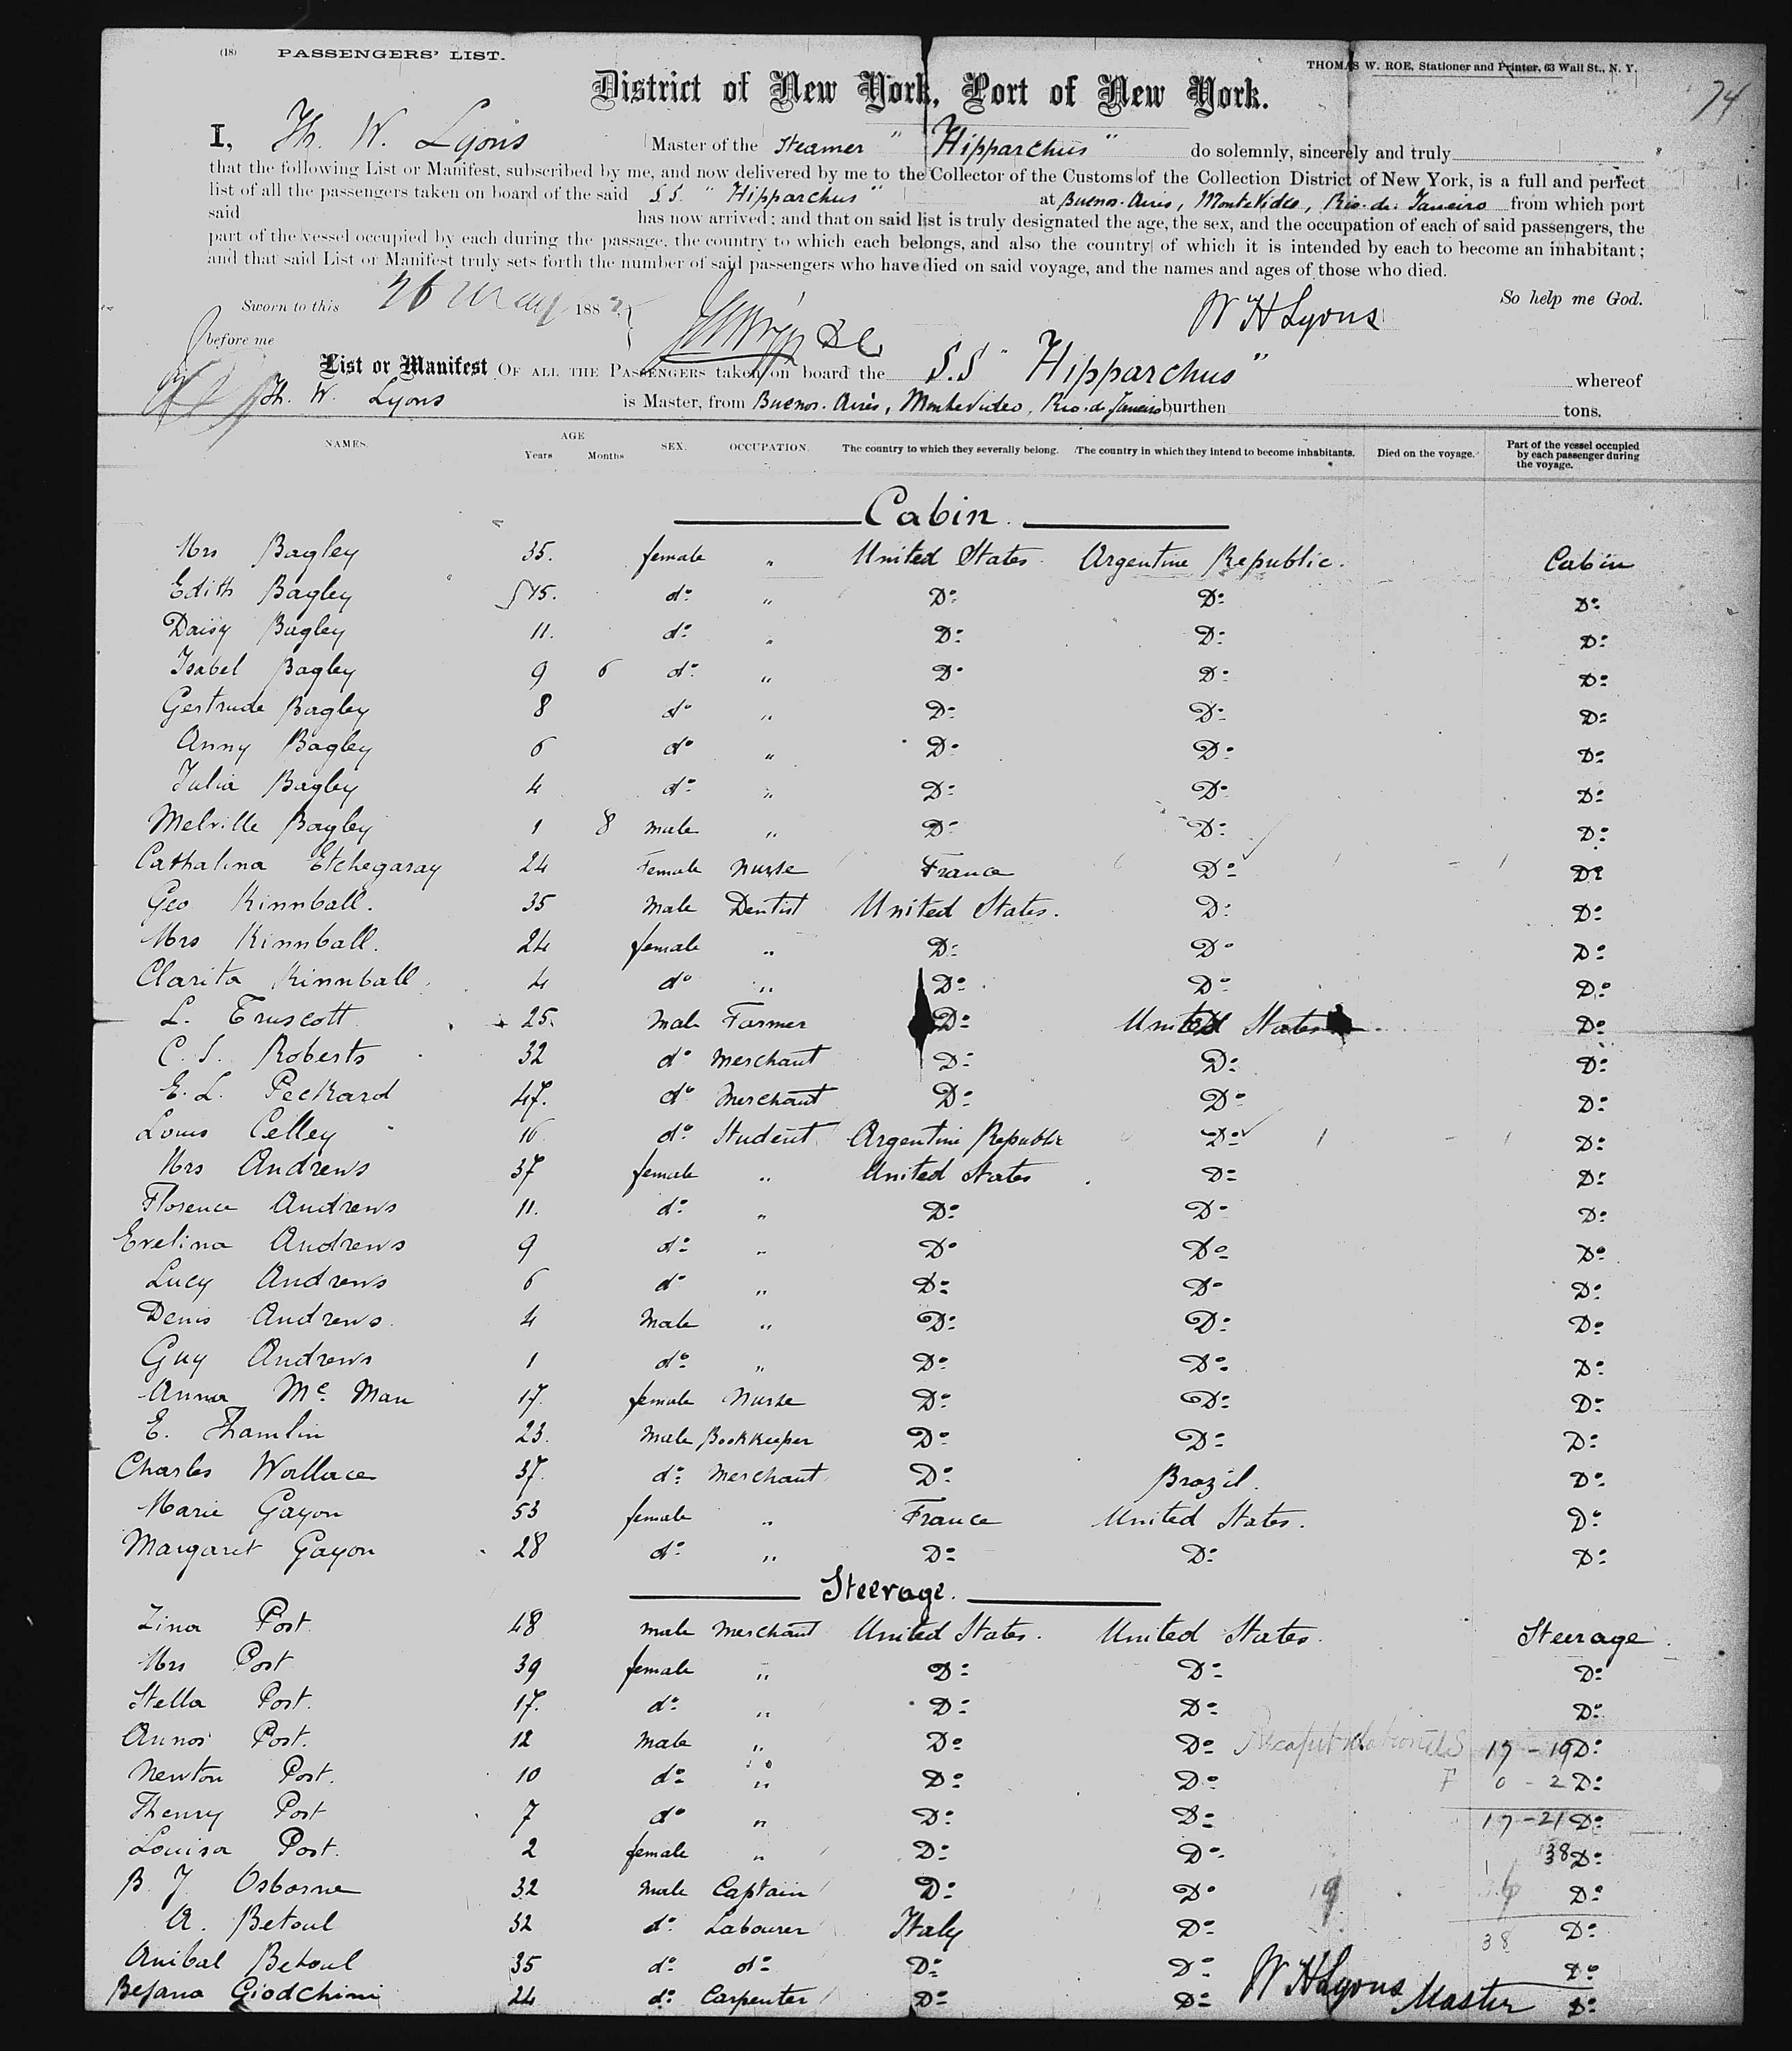 (18) PASSENGERS' LIST. THOMAS W. ROE, Stationer and Printer, 63 Wall St., N. Y.
74
District of New York, Port of New York.
I, Th. W. Lyons Master of the Steamer " Hipparchus " do solemnly, sincerely and truly
that the following List or Manifest, subscribed by me, and now delivered by me to the Collector of the Customs of the Collection District of New York, is a full and perfect
list of all the passengers taken on board of the said S.S. " Hipparchus " at Buenos-Aires, Montevideo, Rio-de-Janeiro from which port
said has now arrived; and that on said list is truly designated the age, the sex, and the occupation of each of said passengers, the
part of the vessel occupied by each during the passage, the country to which each belongs, and also the country of which it is intended by each to become an inhabitant;
and that said List or Manifest truly sets forth the number of said passengers who have died on said voyage, and the names and ages of those who died.
Sworn to this 26 May 188 So help me God.
W H Lyons
before me
List or Manifest OF ALL THE PASSENGERS taken on board the S.S " Hipparchus " whereof
Th. W. Lyons is Master, from Buenos-Aires, Montevideo, Rio-de-Janeiro burthen tons.
NAMES. AGE Years Months SEX. OCCUPATION. The country to which they severally belong. The country in which they intend to become inhabitants. Died on the voyage. Part of the vessel occupied by each passenger during the voyage.
Cabin.
Mrs Bagley 35. female " United States Argentine Republic. Cabin
Edith Bagley 15. do " Do Do Do
Daisy Bagley 11. do " Do Do Do
Isabel Bagley 9 6 do " Do Do Do
Gertrude Bagley 8 do " Do Do Do
Anny Bagley 6 do " Do Do Do
Julia Bagley 4 do " Do Do Do
Melville Bagley 1 8 male " Do Do Do
Cathalina Etchegaray 24 Female Nurse France Do Do
Geo Kinnball. 35 Male Dentist United States. Do Do
Mrs Kinnball. 24 female " Do Do Do
Clarita Kinnball. 4 do " Do Do Do
L. Truscott 25. Male Farmer Do United States Do
C. S. Roberts 32 do Merchant Do Do Do
E. L. Peckard 47. do Merchant Do Do Do
Louis Celley 16 do Student Argentine Republic Do Do
Mrs Andrews 37 female " United States Do Do
Florence Andrews 11. do " Do Do Do
Evelina Andrews 9 do " Do Do Do
Lucy Andrews 6 do " Do Do Do
Denis Andrews 4 Male " Do Do Do
Guy Andrews 1 do " Do Do Do
Anna Mc Man 17. female Nurse Do Do Do
E. Hamlin 23. Male Bookkeeper Do Do Do
Charles Wallace 37. do Merchant Do Brazil. Do
Marie Gayon 53 female " France United States. Do
Margaret Gayon 28 do " Do Do Do
Steerage.
Zina Post. 48 male Merchant United States. United States. Steerage
Mrs Post 39 female " Do Do Do
Stella Post. 17. do " Do Do Do
Annos Post. 12 Male " Do Do Recapitulation US 17 - 19 Do
Newton Post. 10 do " Do Do F 0 - 2 Do
Henry Post 7 do " Do Do 17 - 21 Do
Louisa Post. 2 female " Do Do 38 Do
B. J. Osborne 32 Male Captain Do Do 19 Do
A. Betoul 32 do Labourer Italy Do Do
38
Anibal Betoul 35 do do Do Do Do
Befana Giodchini 24 do Carpenter Do Do W H Lyons Master Do